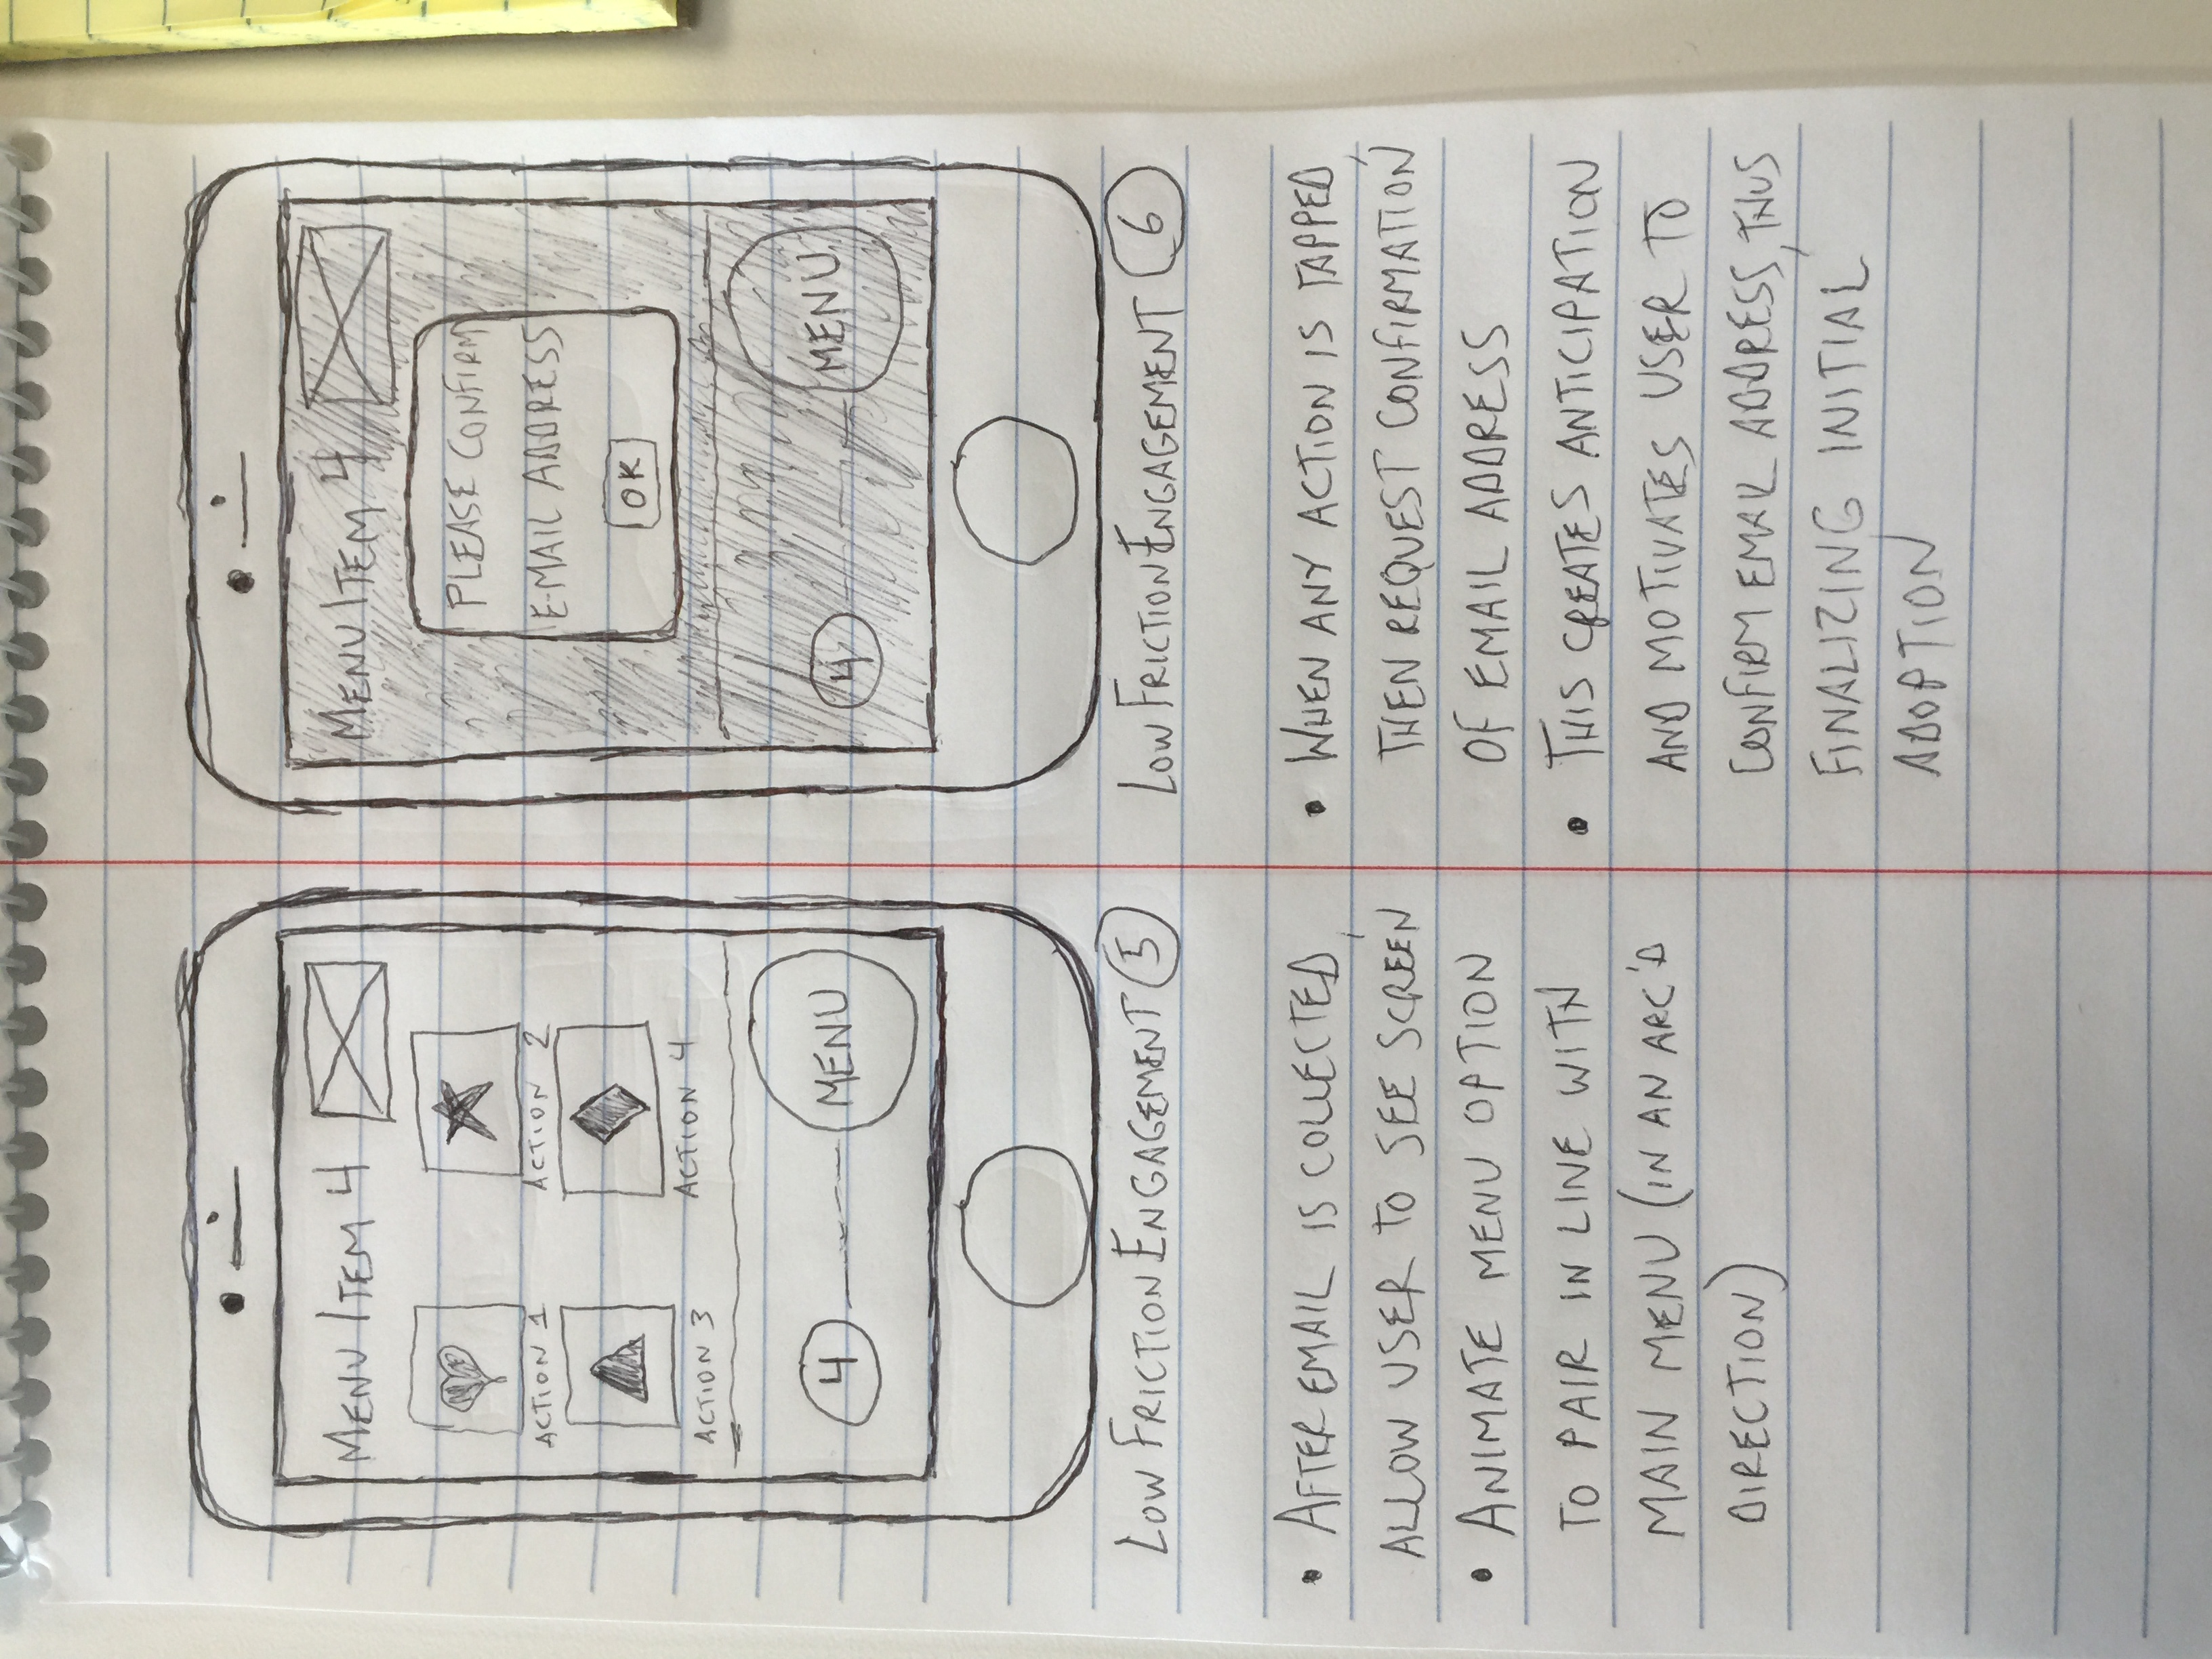 MENU ITEM 4
ACTION 1
ACTION 2
ACTION 3
ACTION 4
4
MENU
LOW FRICTION ENGAGEMENT 5
• AFTER EMAIL IS COLLECTED,
ALLOW USER TO SEE SCREEN
• ANIMATE MENU OPTION
TO PAIR IN LINE WITH
MAIN MENU (IN AN ARC'D
DIRECTION)
MENU ITEM 4
PLEASE CONFIRM
E-MAIL ADDRESS
OK
4
MENU
LOW FRICTION ENGAGEMENT 6
• WHEN ANY ACTION IS TAPPED,
THEN REQUEST CONFIRMATION
OF EMAIL ADDRESS
• THIS CREATES ANTICIPATION
AND MOTIVATES USER TO
CONFIRM EMAIL ADDRESS, THUS
FINALIZING INITIAL
ADOPTION